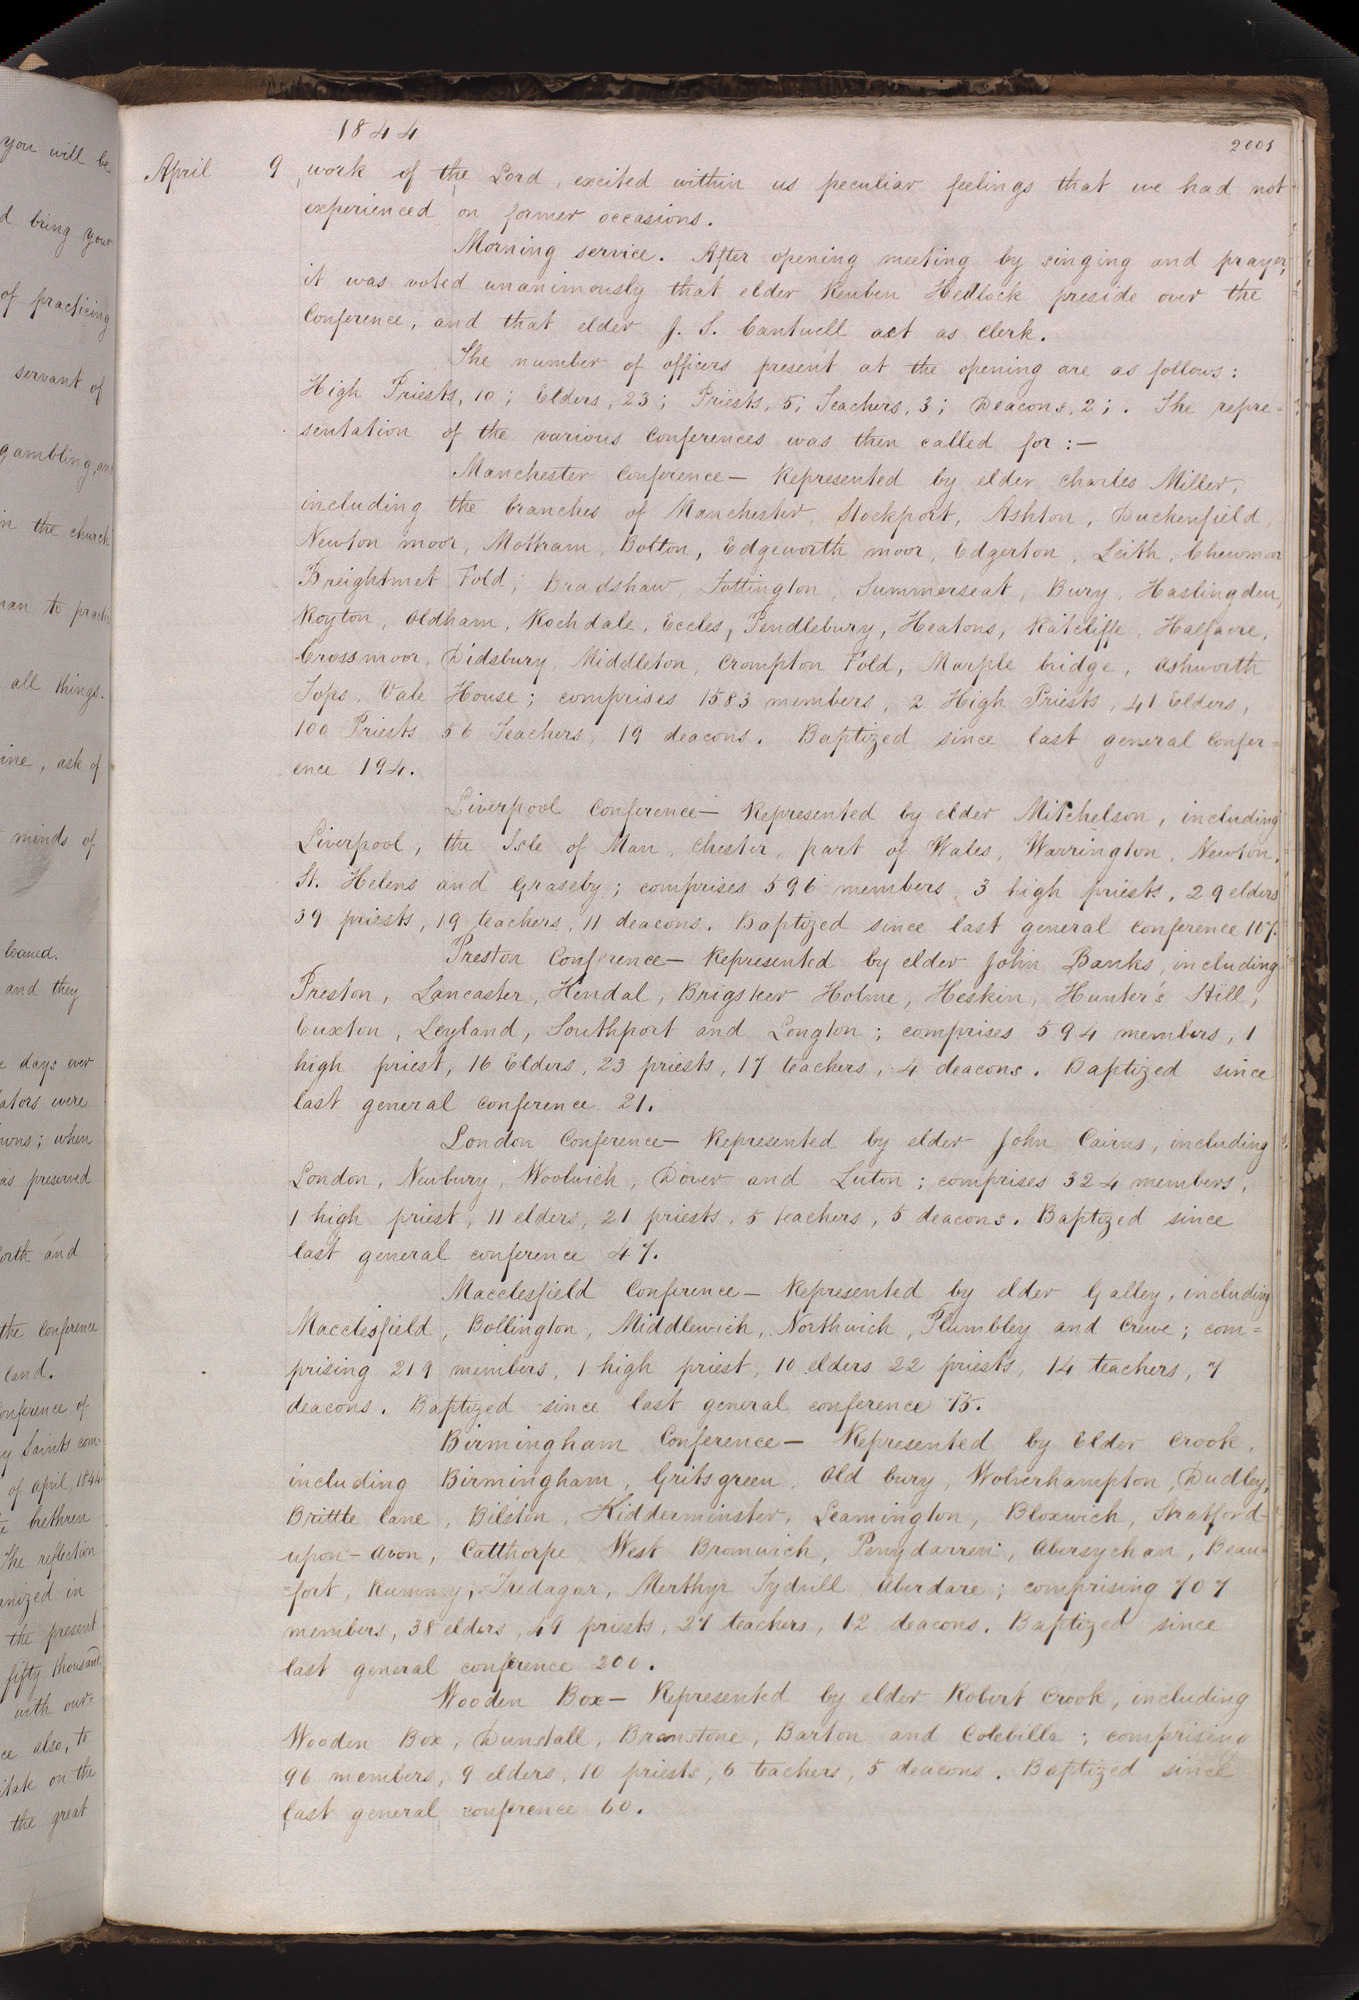 you will be
d bring your
of practicing
servant of
gambling, and
in the church
man to practi
all things.
ine, ask of
minds of
loaned.
and they
e days over
ators were
wns; when
as preserved
forth and
the conference
land.
Conference of
y Saints com-
of April, 1844
te brethren
The reflection
anized in
the present
fifty thousand
with our=
ce also, to
itate on the
the great
1844
2001
April 9 work of the Lord, excited within us peculiar feelings that we had not
experienced on former occasions.
Morning service. After opening meeting by singing and prayer,
it was voted unanimously that elder Reuben Hedlock preside over the
Conference, and that elder J. S. Cantwell act as clerk.
The number of officers present at the opening are as follows:
High Priests, 10; Elders, 23; Priests, 5; Teachers, 3; Deacons, 2;. The repre=
sentation of the various Conferences was then called for:—
Manchester Conference— Represented by elder Charles Miller,
including the branches of Manchester, Stockport, Ashton, Duckenfield,
Newton moor, Mottram, Bolton, Edgeworth moor, Edgerton, Leith, Chewmoor
Breightmet Fold; Bradshaw, Tottington, Summerseat, Bury, Haslingden,
Royton, Oldham, Rochdale, Eccles, Pendlebury, Heatons, Ratcliffe, Halfacre,
Crossmoor, Didsbury, Middleton, Crompton Fold, Marple bridge, Ashworth
Tops, Vale House; comprises 1583 members, 2 High Priests, 41 Elders,
100 Priests 56 Teachers, 19 deacons. Baptized since last general Confer=
ence 194.
Liverpool Conference— Represented by elder Mitchelson, including
Liverpool, the Isle of Man, Chester, part of Wales, Warrington, Newton,
St. Helens and Graseby; comprises 596 members, 3 high priests, 29 elders
39 priests, 19 teachers, 11 deacons. Baptized since last general Conference 107.
Preston Conference— Represented by elder John Banks, including
Preston, Lancaster, Kendal, Brigsteer Holme, Heskin, Hunter's Hill,
Euxton, Leyland, Southport and Longton; comprises 594 members, 1
high priest, 16 Elders, 23 priests, 17 teachers, 4 deacons. Baptized since
last general conference 21.
London Conference— Represented by elder John Cairns, including
London, Newbury, Woolwich, Dover and Luton; comprises 324 members,
1 high priest, 11 elders, 21 priests, 5 teachers, 5 deacons. Baptized since
last general conference 47.
Macclesfield Conference— Represented by elder Galley, including
Macclesfield, Bollington, Middlewich, Northwich, Plumbley and Crewe; com=
prising 219 members, 1 high priest, 10 elders 22 priests, 14 teachers, 7
deacons. Baptized since last general conference 15.
Birmingham Conference— Represented by Elder Crook,
including Birmingham, Gritsgreen, Old bury, Wolverhampton, Dudley,
Brittle lane, Bilston, Kidderminster, Leamington, Bloxwich, Stratford-
upon-Avon, Catthorpe West Bromwich, Penydarren, Abersychan, Beau=
=fort, Rumny, Tredagar, Merthyr Tydvill Aberdare; comprising 707
members, 38 elders, 49 priests, 27 teachers, 12 deacons. Baptized since
last general conference 200.
Wooden Box— Represented by elder Robert Crook, including
Wooden Box, Dunstall, Branstone, Barton and Colebille; comprising
96 members, 9 elders, 10 priests, 6 teachers, 5 deacons. Baptized since
last general conference 60.